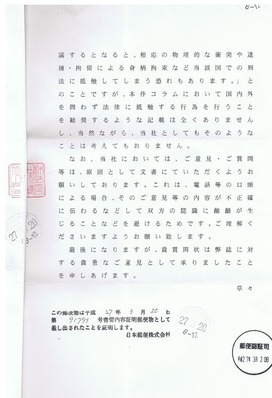 議するとなると、相応の物理的な衝突や逮
捕・拘留による身柄拘束など当該国での刑
法に抵触してしまう恐れもあります。」と
のことですが、本件コラムにおいて国内外
を問わず法律に抵触する行為を行うこと
を勧奨するような記載は全くありません
し、当然ながら、当社としてもそのような
ことは考えておりません。
なお、当社においては、ご意見・ご質問
等は、原則として文書にていただくようお
願いしております。これは、電話等の口頭
による場合、そのご意見等の内容が不正確
に伝わるなどして双方の認識に齟齬が生
じることなどを避けるためです。ご理解く
ださいますようお願い致します。
最後になりますが、貴質問状は弊誌に対
する貴重なご意見として承りましたこと
を申しあげます。
草々
この郵便物は平成 27 年 3 月 20 日
第 号書留内容証明郵便物として
差し出されたことを証明します。
日本郵便株式会社
郵便認証司
27. 3. 20
8-12